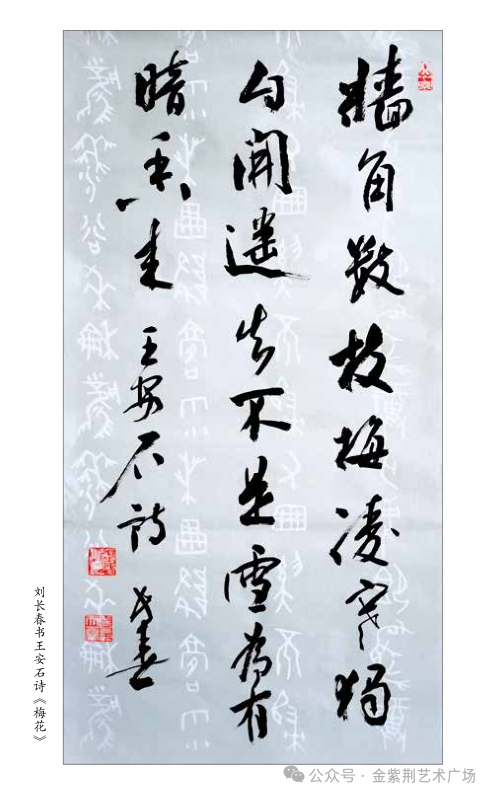 牆角數枝梅凌寒獨
自開遥知不是雪為有
暗香来 王安石詩 長春
刘长春书王安石诗《梅花》
公众号 · 金紫荆艺术广场